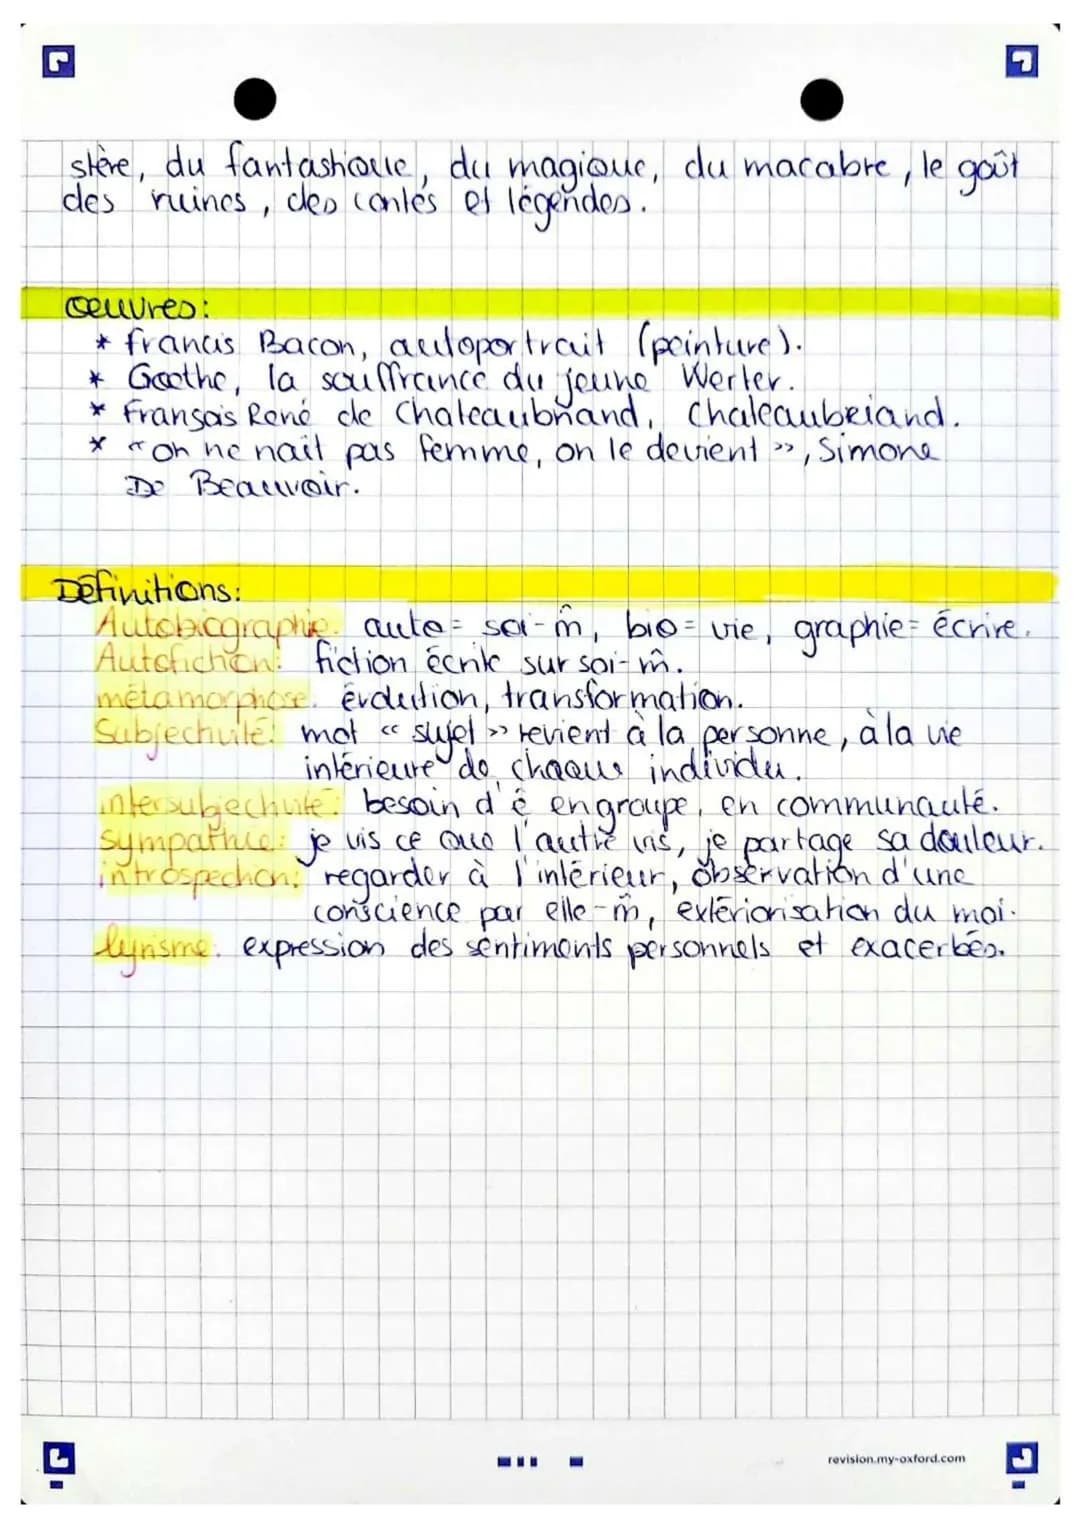 stère, du fantastique, du magique, du macabre, le goût
des ruines, des contes et légendes.
Oeuvres:
* Francis Bacon, autoportrait (peinture).
* Goethe, la souffrance du jeune Werter.
* Fransois René de Chateaubriand, Chateaubriand.
* « on ne nait pas femme, on le devient », Simone
De Beauvoir.
Définitions:
Autobiographie: auto= soi-m̂, bio= vie, graphie= écrire.
Autofiction: fiction écrite sur soi-m̂.
métamorphose: évolution, transformation.
Subjectivité: mot « sujet » revient à la personne, à la vie
intérieure de chaque individu.
intersubjectivité: besoin d'ê en groupe, en communauté.
sympathie: je vis ce que l'autre vis, je partage sa douleur.
introspection: regarder à l'intérieur, observation d'une
conscience par elle-m̂, extériorisation du moi.
lyrisme: expression des sentiments personnels et exacerbés.
revision.my-oxford.com